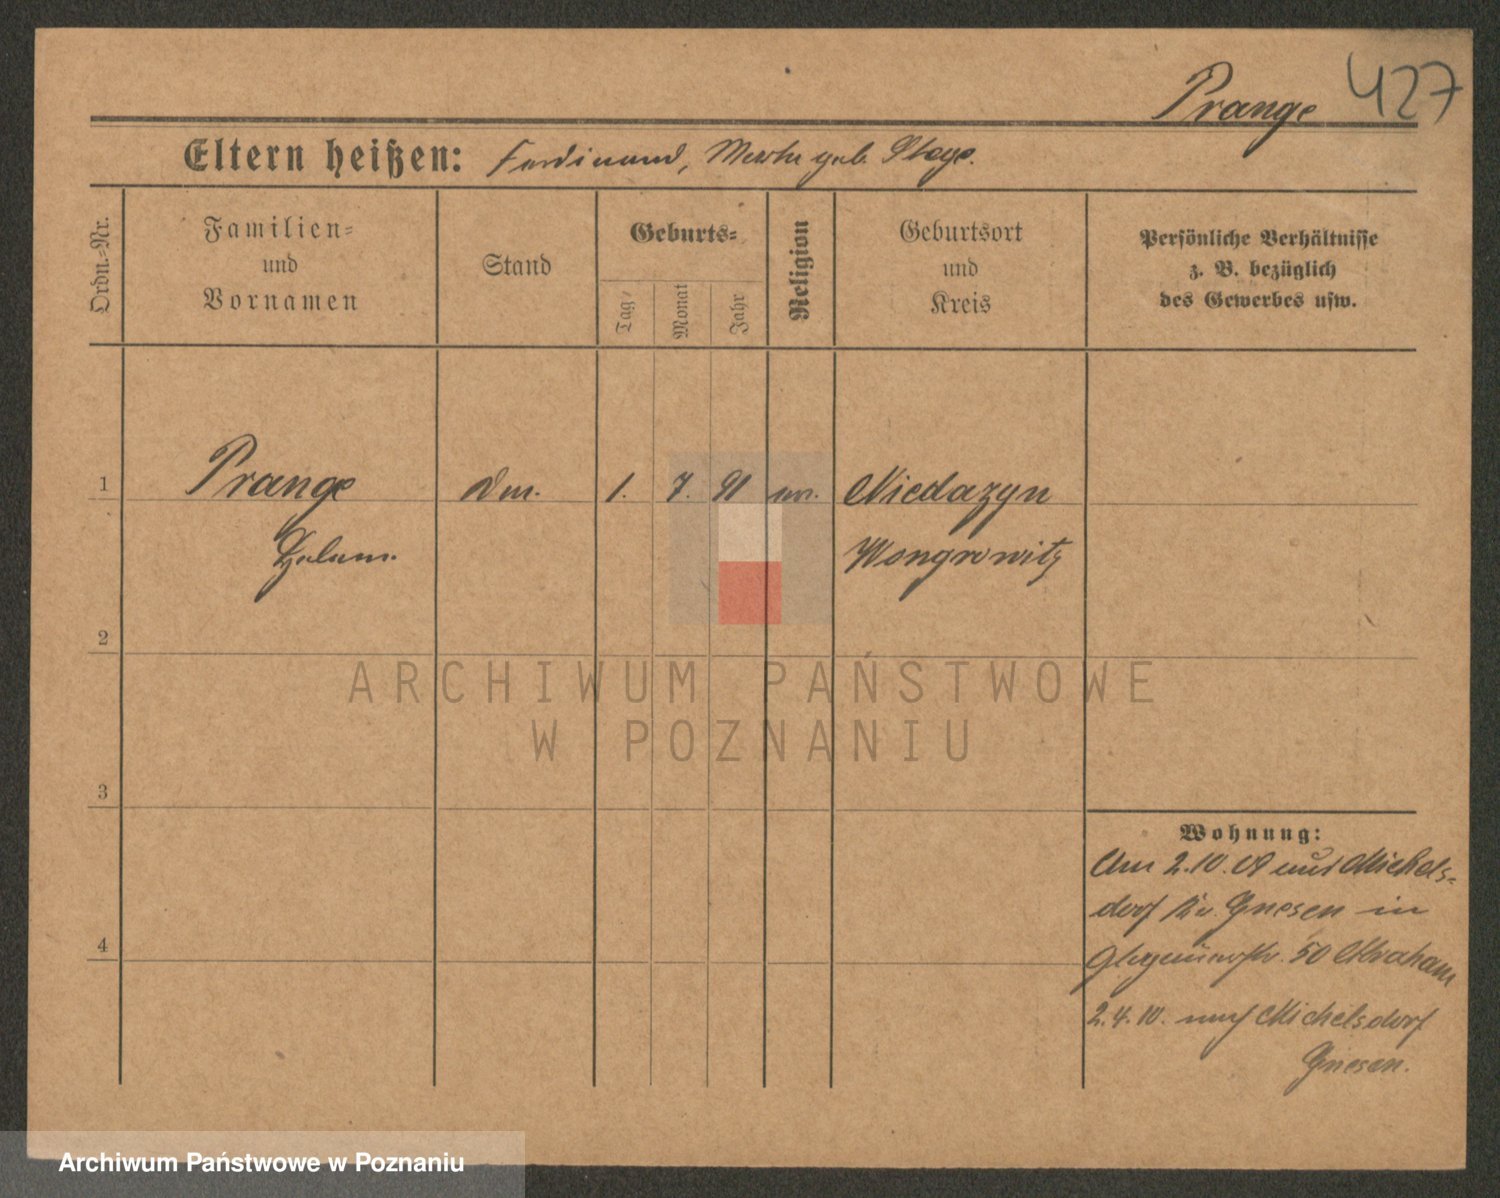 Prange 427
Eltern heißen: Ferdinand, geb.
Ordn.-Nr.
Familien-
und
Vornamen
Stand
Geburts-
Tag
Monat
Jahr
Religion
Geburtsort
und
Kreis
Persönliche Verhältnisse
z. B. bezüglich
des Gewerbes usw.
1 Prange 1. 7. 91 Niedazyn
Wongrowitz
2
ARCHIWUM PAŃSTWOWE
W POZNANIU
3
Wohnung:
Am 2.10.09 aus Michels-
dorf Kr. Gnesen in
50 Abraham
4
2.4.10. nach Michelsdorf
Gnesen.
Archiwum Państwowe w Poznaniu